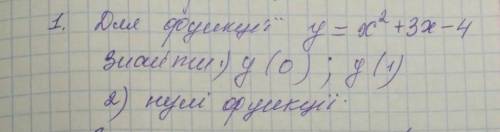 1. Для функції y = x² + 3x - 4
Знайти 1) y (0) ; y (1)
2) нулі функції.